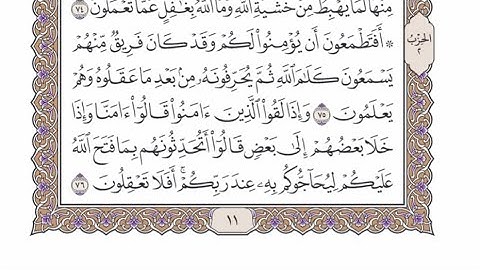 مِنْهَا لَمَا يَهْبِطُ مِنْ خَشْيَةِ ٱللَّهِ وَمَا ٱللَّهُ بِغَٰفِلٍ عَمَّا تَعْمَلُونَ ٧٤
۞ أَفَتَطْمَعُونَ أَن يُؤْمِنُوا۟ لَكُمْ وَقَدْ كَانَ فَرِيقٌ مِّنْهُمْ
الحزب ٢
يَسْمَعُونَ كَلَٰمَ ٱللَّهِ ثُمَّ يُحَرِّفُونَهُۥ مِنۢ بَعْدِ مَا عَقَلُوهُ وَهُمْ
يَعْلَمُونَ ٧٥ وَإِذَا لَقُوا۟ ٱلَّذِينَ ءَامَنُوا۟ قَالُوٓا۟ ءَامَنَّا وَإِذَا
خَلَا بَعْضُهُمْ إِلَىٰ بَعْضٍ قَالُوٓا۟ أَتُحَدِّثُونَهُم بِمَا فَتَحَ ٱللَّهُ
عَلَيْكُمْ لِيُحَآجُّوكُم بِهِۦ عِندَ رَبِّكُمْ ۚ أَفَلَا تَعْقِلُونَ ٧٦
١١